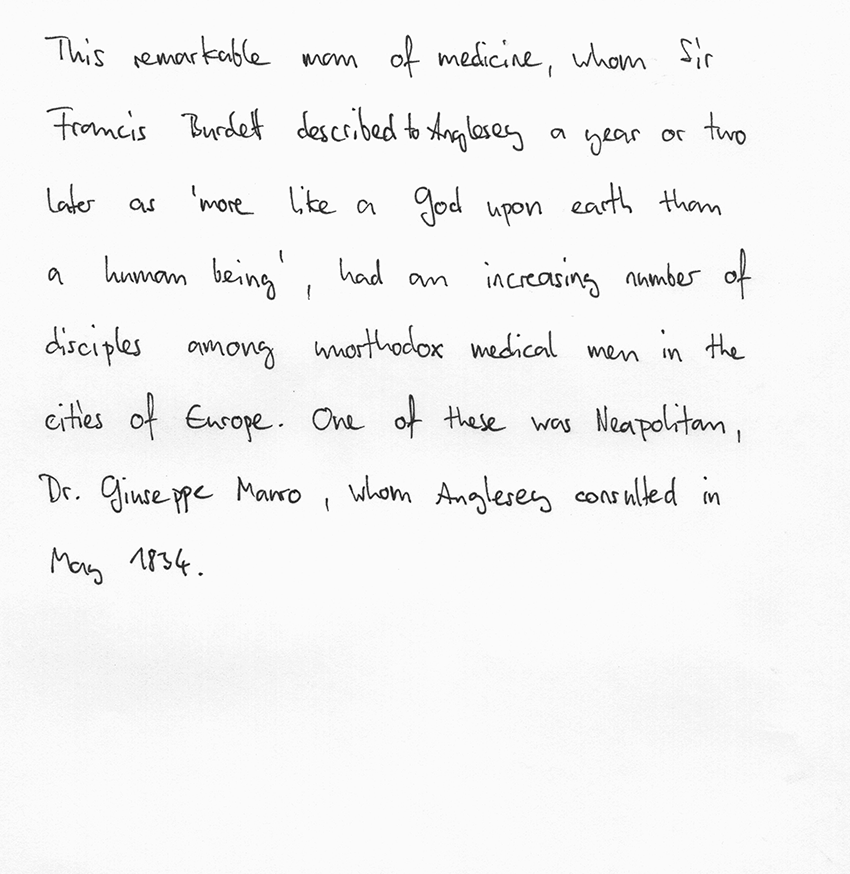 This remarkable man of medicine, whom Sir
Francis Burdett described to Anglesey a year or two
later as 'more like a god upon earth than
a human being', had an increasing number of
disciples among unorthodox medical men in the
cities of Europe. One of these was Neapolitan,
Dr. Giuseppe Mauro, whom Anglesey consulted in
May 1834.